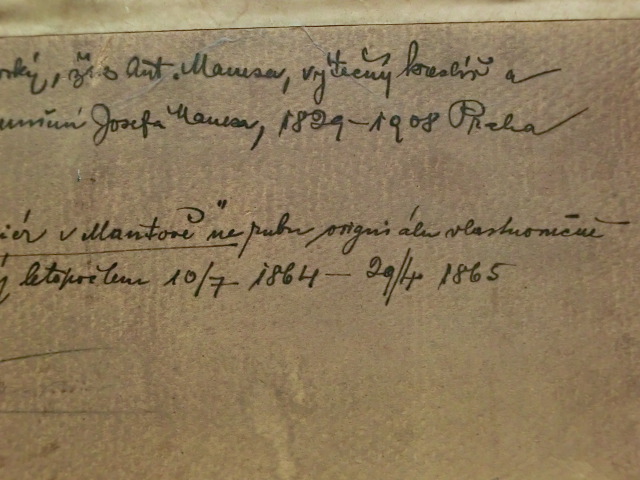 ský, žák Ant. Manesa, výtečný kreslíř a
Josefa Manesa, 1829–1908 Praha
v Mantově" ne originálu vlastnoručně
letopočtem 10/7 1864 – 29/4 1865